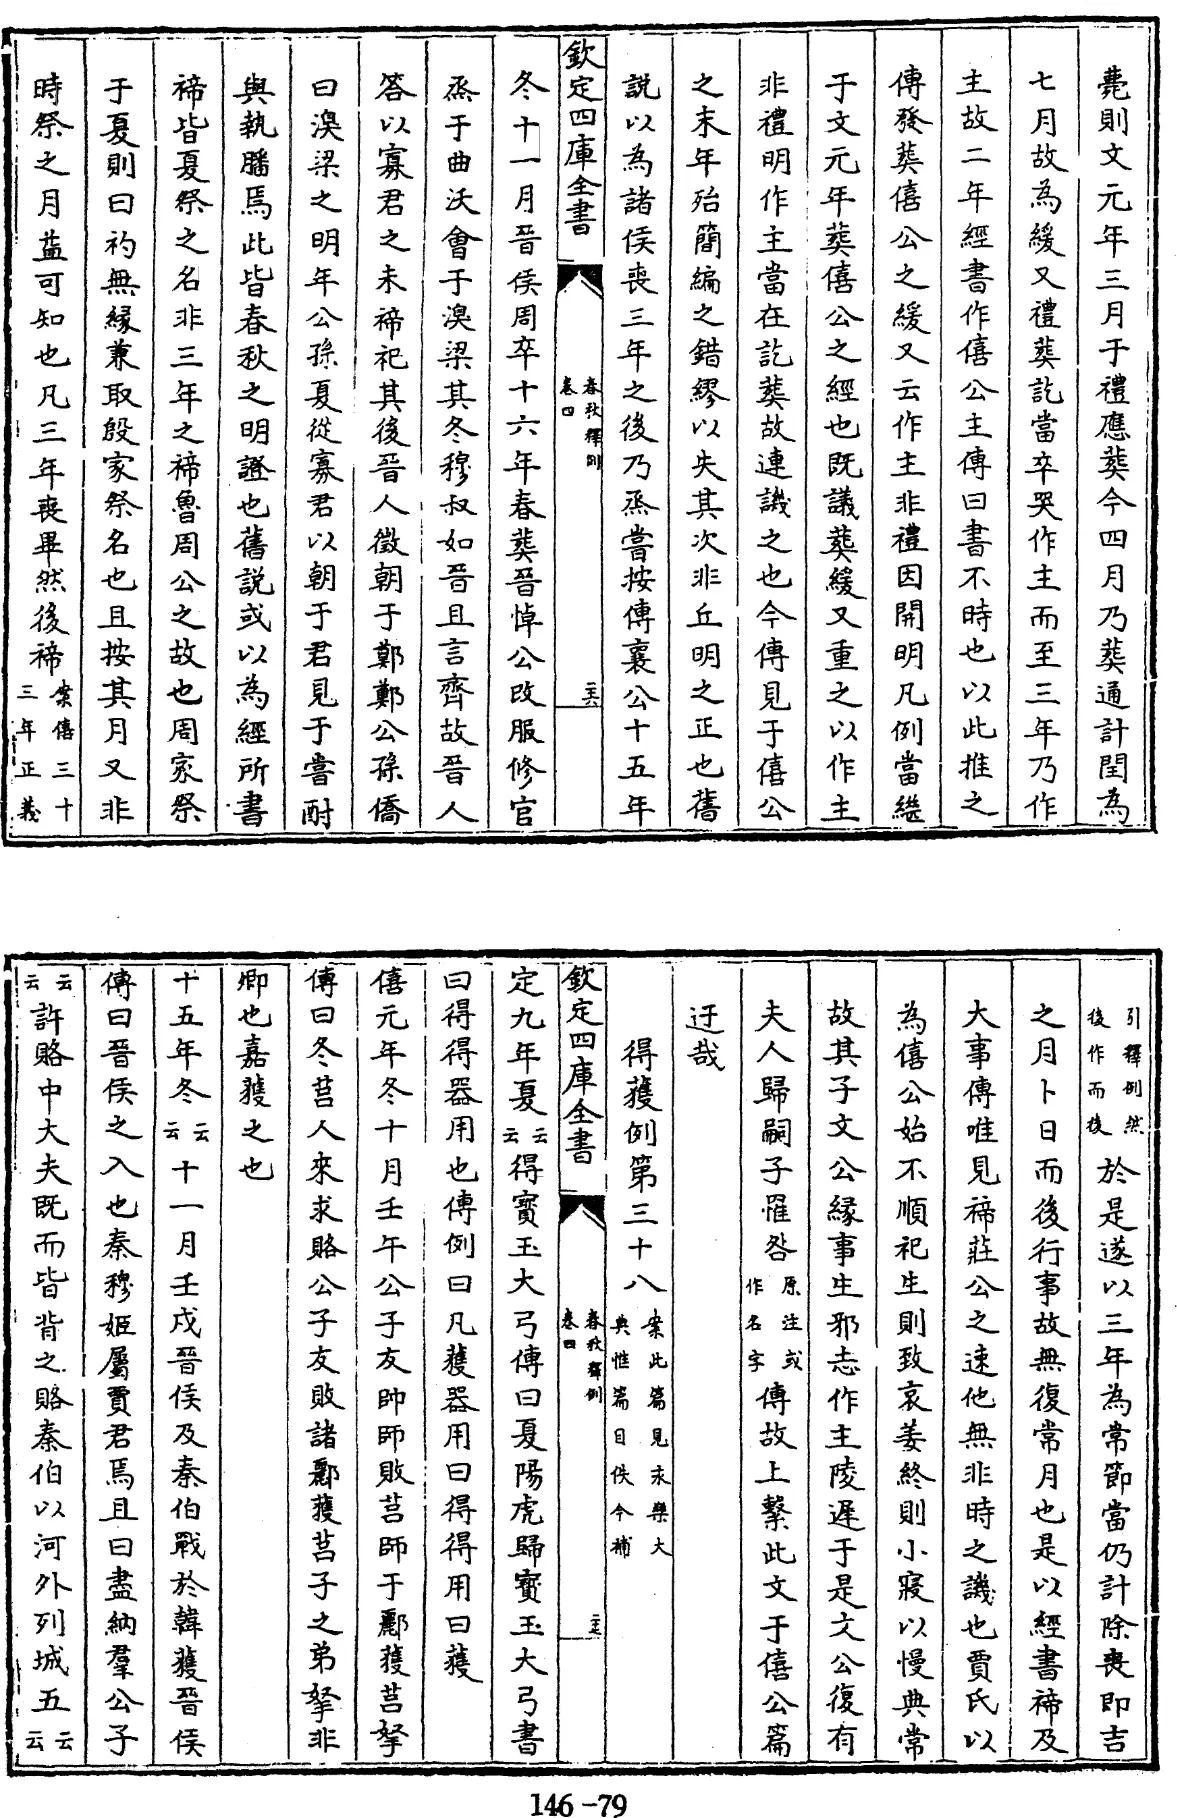 薨則文元年三月于禮應葬今四月乃葬通計閏為
七月故為緩又禮葬訖當卒哭作主而至三年乃作
主故二年經書作僖公主傳曰書不時也以此推之
傳發葬僖公之緩又云作主非禮因開明凡例當繼
于文元年葬僖公之經也既議葬緩又重之以作主
非禮明作主當在訖葬故連譏之也今傳見于僖公
之末年殆簡編之錯繆以失其次非丘明之正也舊
說以為諸侯喪三年之後乃烝嘗按傳襄公十五年
欽定四庫全書
春秋釋例
卷四
二六
冬十一月晉侯周卒十六年春葬晉悼公改服修官
烝于曲沃會于湨梁其冬穆叔如晉且言齊故晉人
答以寡君之未禘祀其後晉人徵朝于鄭鄭公孫僑
曰湨梁之明年公孫夏從寡君以朝于君見于嘗酎
與執膰焉此皆春秋之明證也舊說或以為經所書
禘皆夏祭之名非三年之禘魯周公之故也周家祭
于夏則曰礿無緣兼取殷家祭名也且按其月又非
時祭之月益可知也凡三年喪畢然後禘案僖三十
三年正義
引釋例然
後作而後於是遂以三年為常節當仍計除喪即吉
之月卜日而後行事故無復常月也是以經書禘及
大事傳唯見禘莊公之速他無非時之譏也賈氏以
為僖公始不順祀生則致哀姜終則小寢以慢典常
故其子文公緣事生邪志作主陵遲于是文公復有
夫人歸嗣子罹咎原注或
作名字傳故上繫此文于僖公篇
迂哉
得獲例第三十八案此篇見永樂大
典惟篇目佚今補
欽定四庫全書
春秋釋例
卷四
二七
定九年夏云云得寶玉大弓傳曰夏陽虎歸寶玉大弓書
曰得得器用也傳例曰凡獲器用曰得得用曰獲
僖元年冬十月壬午公子友帥師敗莒師于酈獲莒拏
傳曰冬莒人來求賂公子友敗諸酈獲莒子之弟拏非
卿也嘉獲之也
十五年冬云云十一月壬戌晉侯及秦伯戰於韓獲晉侯
傳曰晉侯之入也秦穆姬屬賈君焉且曰盡納羣公子
云云許賂中大夫既而皆背之賂秦伯以河外列城五云云
146-79